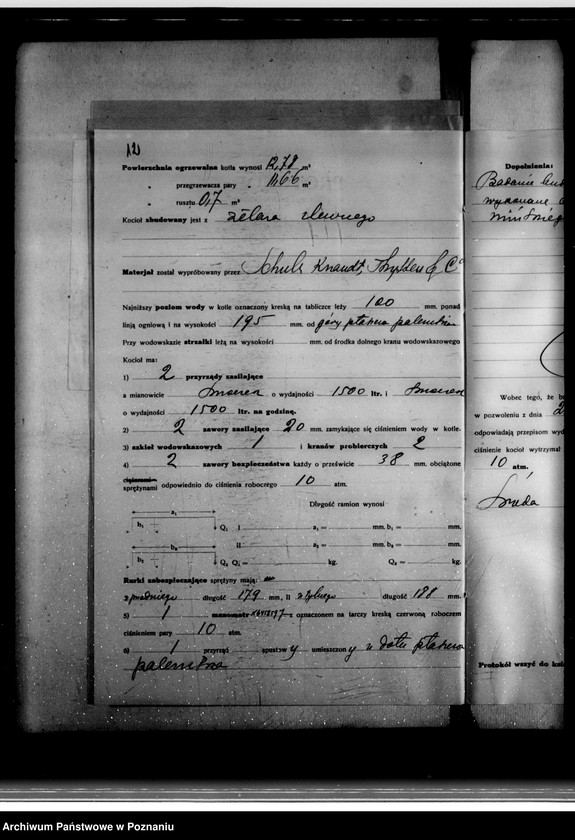 12
Powierzchnia ogrzewalna kotła wynosi 12,78 m²
„ przegrzewacza pary „ 11,66 m²
„ rusztu 0,7 m²
Kocioł zbudowany jest z żelaza zlewnego
Materjał został wypróbowany przez Schulz Knaudt, Thyssen & Co
Najniższy poziom wody w kotle oznaczony kreską na tabliczce leży 100 mm. ponad
linją ogniową i na wysokości 195 mm. od góry płaszcza paleniska
Przy wodowskazie strzałki leżą na wysokości mm. od środka dolnego kranu wodowskazowego
Kocioł ma:
1) 2 przyrządy zasilające
a mianowicie o wydajności 1500 ltr. i
o wydajności 1500 ltr. na godzinę.
2) 2 zawory zasilające 20 mm. zamykające się ciśnieniem wody w kotle.
3) szkieł wodowskazowych 1 i kranów probierczych 2
4) 2 zawory bezpieczeństwa każdy o prześwicie 38 mm. obciążone
ciężarami
sprężynami odpowiednio do ciśnienia roboczego 10 atm.
Długość ramion wynosi
a₁
b₁ Q₁ I a₁ = mm. b₁ = mm.
b₂ II a₂ = mm. b₂ = mm.
Q₂ Q₁ = kg. Q₂ = kg.
Rurki zabezpieczające sprężyny mają:
z przedniego długość 179 mm, II z tylnego długość 188 mm.
5) 1 manometr z oznaczonem na tarczy kreską czerwoną roboczem
ciśnieniem pary 10 atm.
6) 1 przyrząd spustowy umieszczony u dołu płaszcza
paleniska
Dopełnienia:
Badanie
wykonane
Wobec tego, że
w pozwoleniu z dnia 2
odpowiadają przepisom wyd
ciśnienie kocioł wytrzymał
10 atm.
Środa
Protokół wszyć do
Archiwum Państwowe w Poznaniu